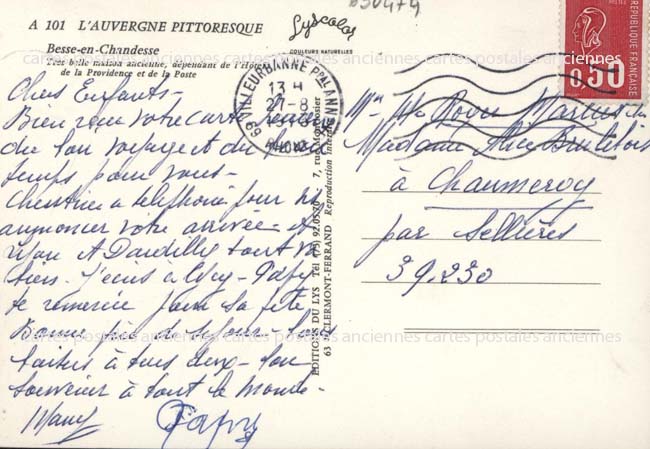 A 101 L'AUVERGNE PITTORESQUE
Besse-en-Chandesse
Très belle maison ancienne, dépendant de l'Hôtel
de la Providence et de la Poste
Lyscolor
COULEURS NATURELLES
Chers Enfants -
Bien reçu votre carte
du bon voyage et du beau
temps pour vous -
a téléphoné pour
annoncer votre arrivée - A
Lyon A Dardilly tout va
bien. J'écris à - Papy
te remercie pour sa fête
Bonne fin de séjour -
baisers à tous deux - bon
souvenir à tout le monde -
Mamy Papy
69 VILLEURBANNE Pal ANNEXE
13 H
27-8
RHONE
ÉDITIONS DU LYS Tél (73) 92.05.70 7, rue Montlosier
63 CLERMONT-FERRAND Reproduction interdite
REPUBLIQUE FRANÇAISE
0,50
Mr
Madame
à Chaumergy
par Sellières
39.230
cartes postales anciennes cartes postales anciennes cartes postales anciennes
cartes postales anciennes cartes postales anciennes cartes postales anciennes